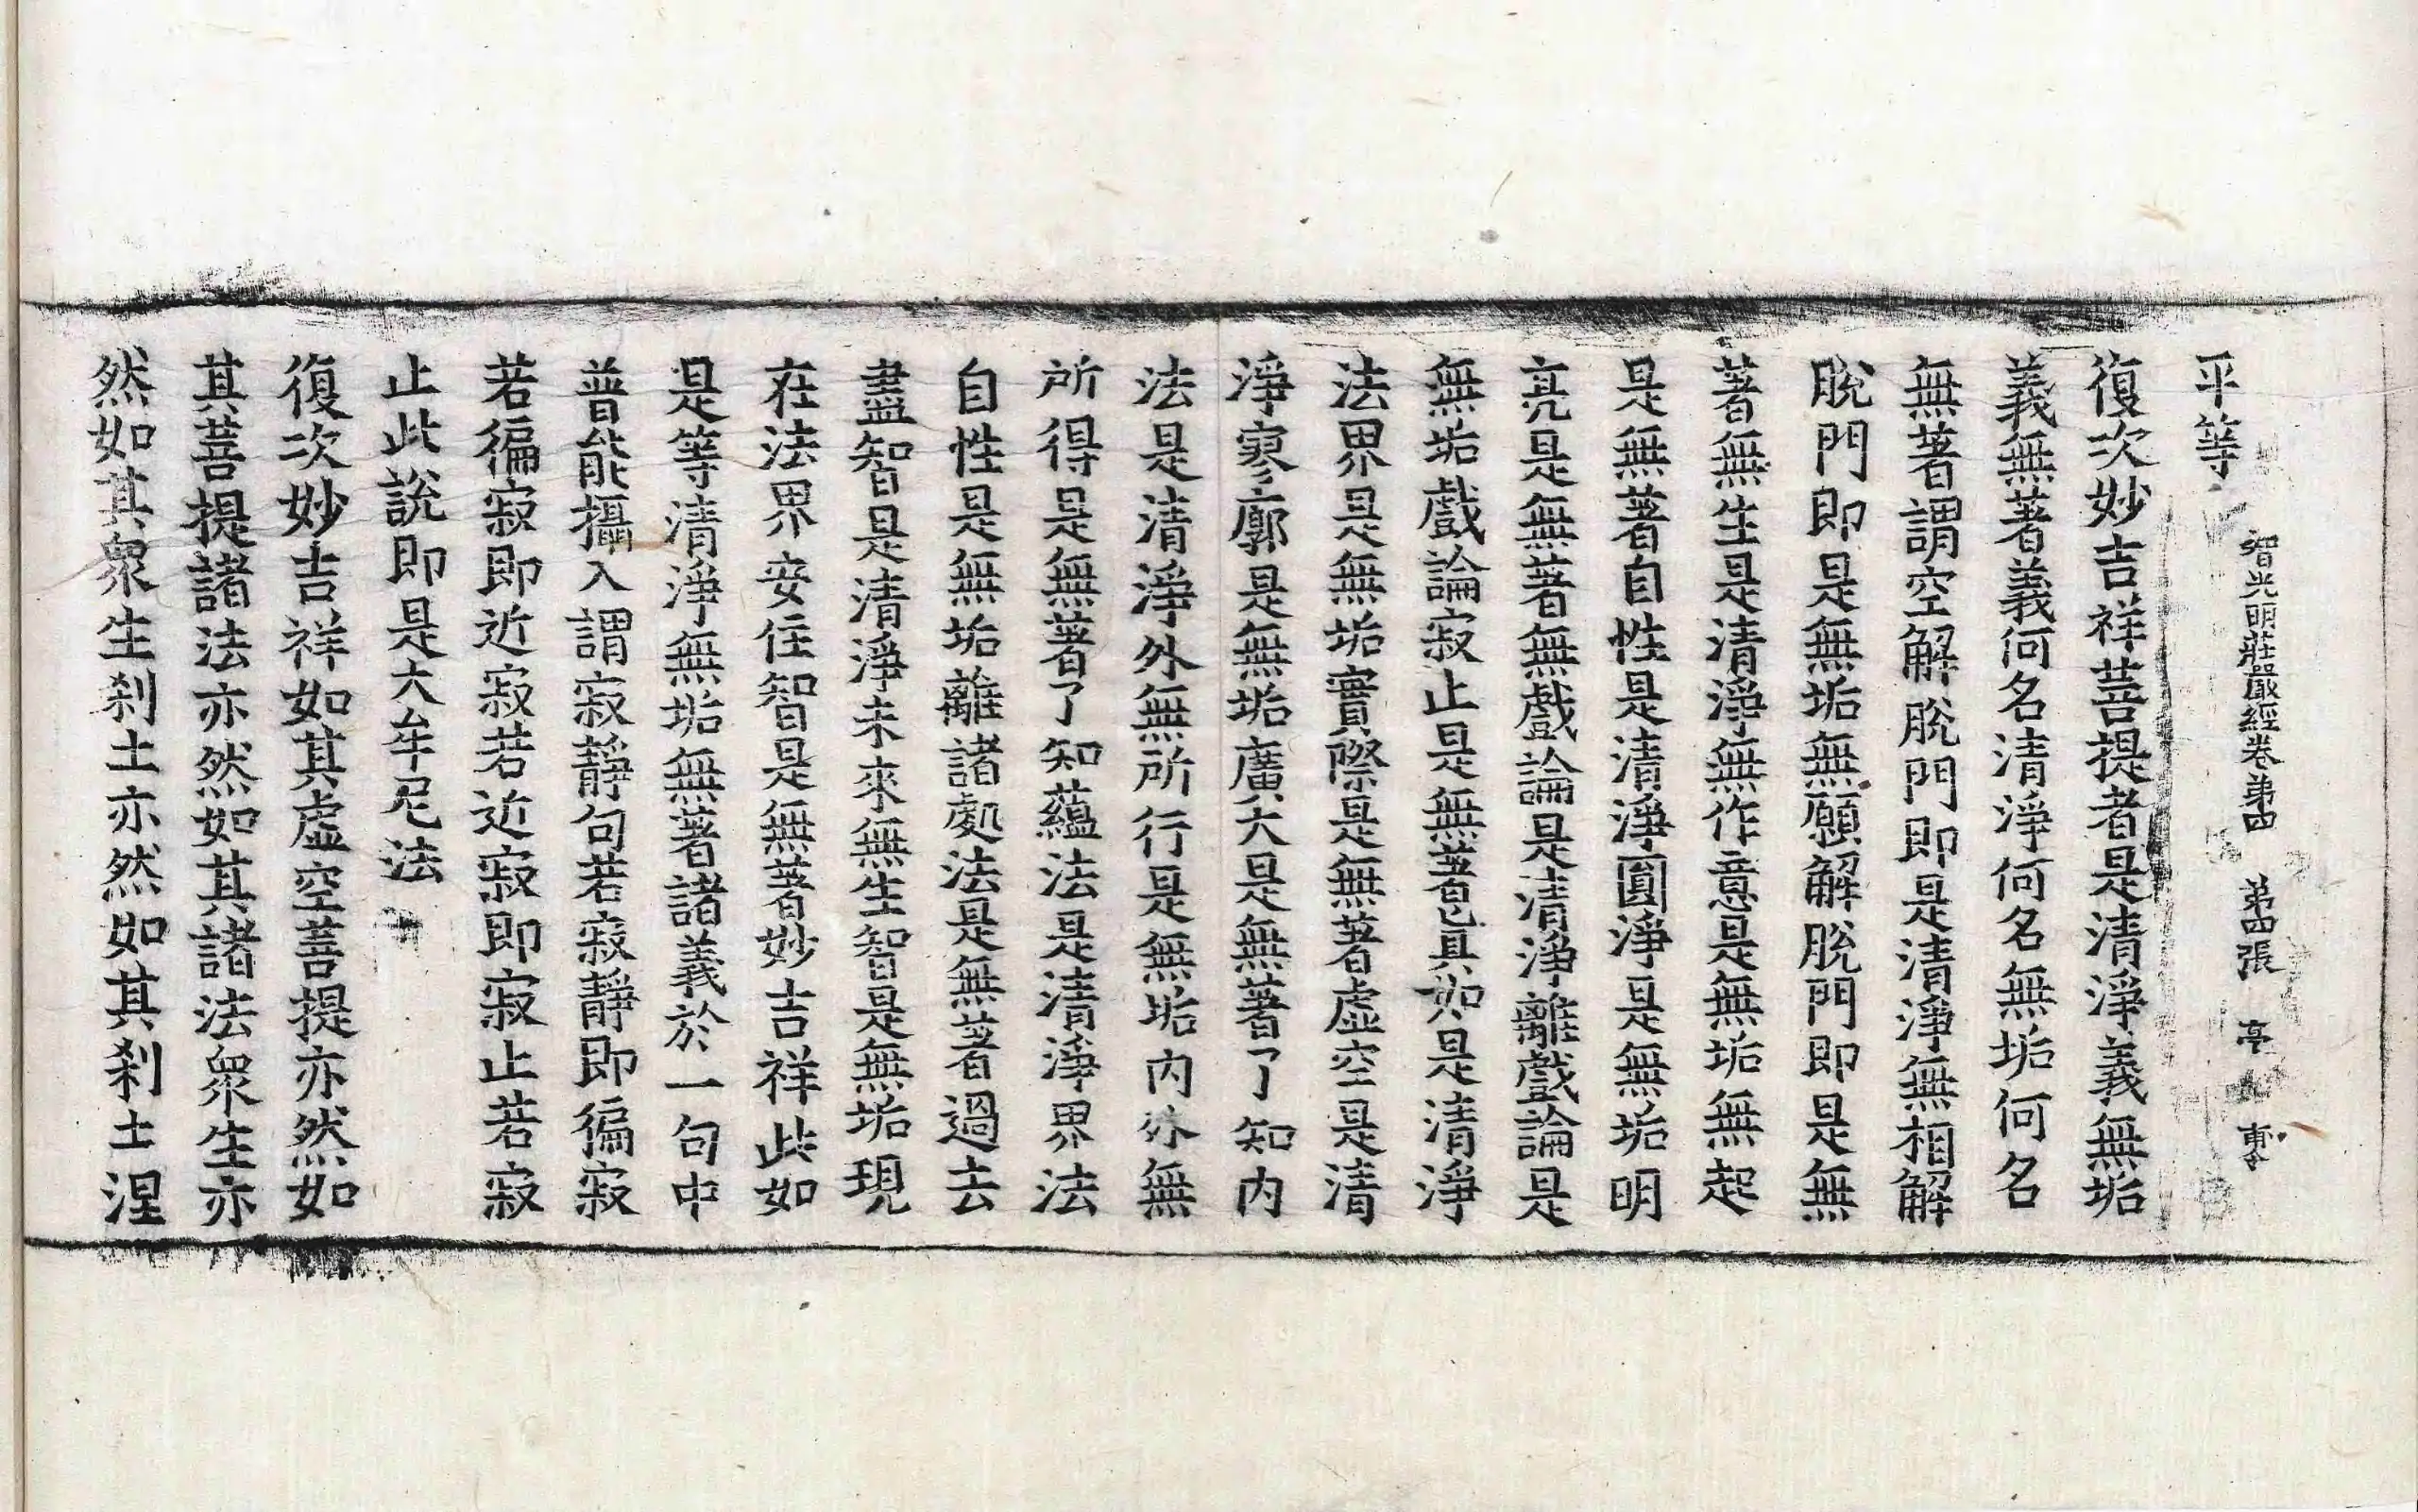 智光明莊嚴經卷第四 第四張 亭
平等
復次妙吉祥菩提者是清淨義無垢
義無著義何名清淨何名無垢何名
無著謂空解脫門即是清淨無相解
脫門即是無垢無願解脫門即是無
著無生是清淨無作意是無垢無起
是無著自性是清淨圓淨是無垢明
亮是無著無戲論是清淨離戲論是
無垢戲論寂止是無著真如是清淨
法界是無垢實際是無著虛空是清
淨寥廓是無垢廣大是無著了知內
法是清淨外無所行是無垢內外無
所得是無著了知蘊法是清淨界法
自性是無垢離諸處法是無著過去
盡智是清淨未來無生智是無垢現
在法界安住智是無著妙吉祥此如
是等清淨無垢無著諸義於一句中
普能攝入謂寂靜句若寂靜即徧寂
若徧寂即近寂若近寂即寂止若寂
止此說即是大牟尼法
復次妙吉祥如其虛空菩提亦然如
其菩提諸法亦然如其諸法眾生亦
然如其眾生刹土亦然如其刹土涅